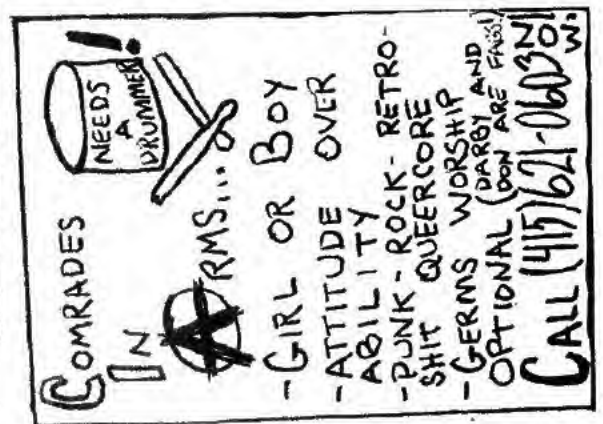 COMRADES
IN
ARMS...
NEEDS
A
DRUMMER!
-GIRL OR BOY
-ATTITUDE OVER
ABILITY
-PUNK-ROCK-RETRO-
SHIT QUEERCORE
-GERMS WORSHIP
OPTIONAL (DARBY AND
DON ARE FAGS!)
CALL (415)621-0603 NOW.